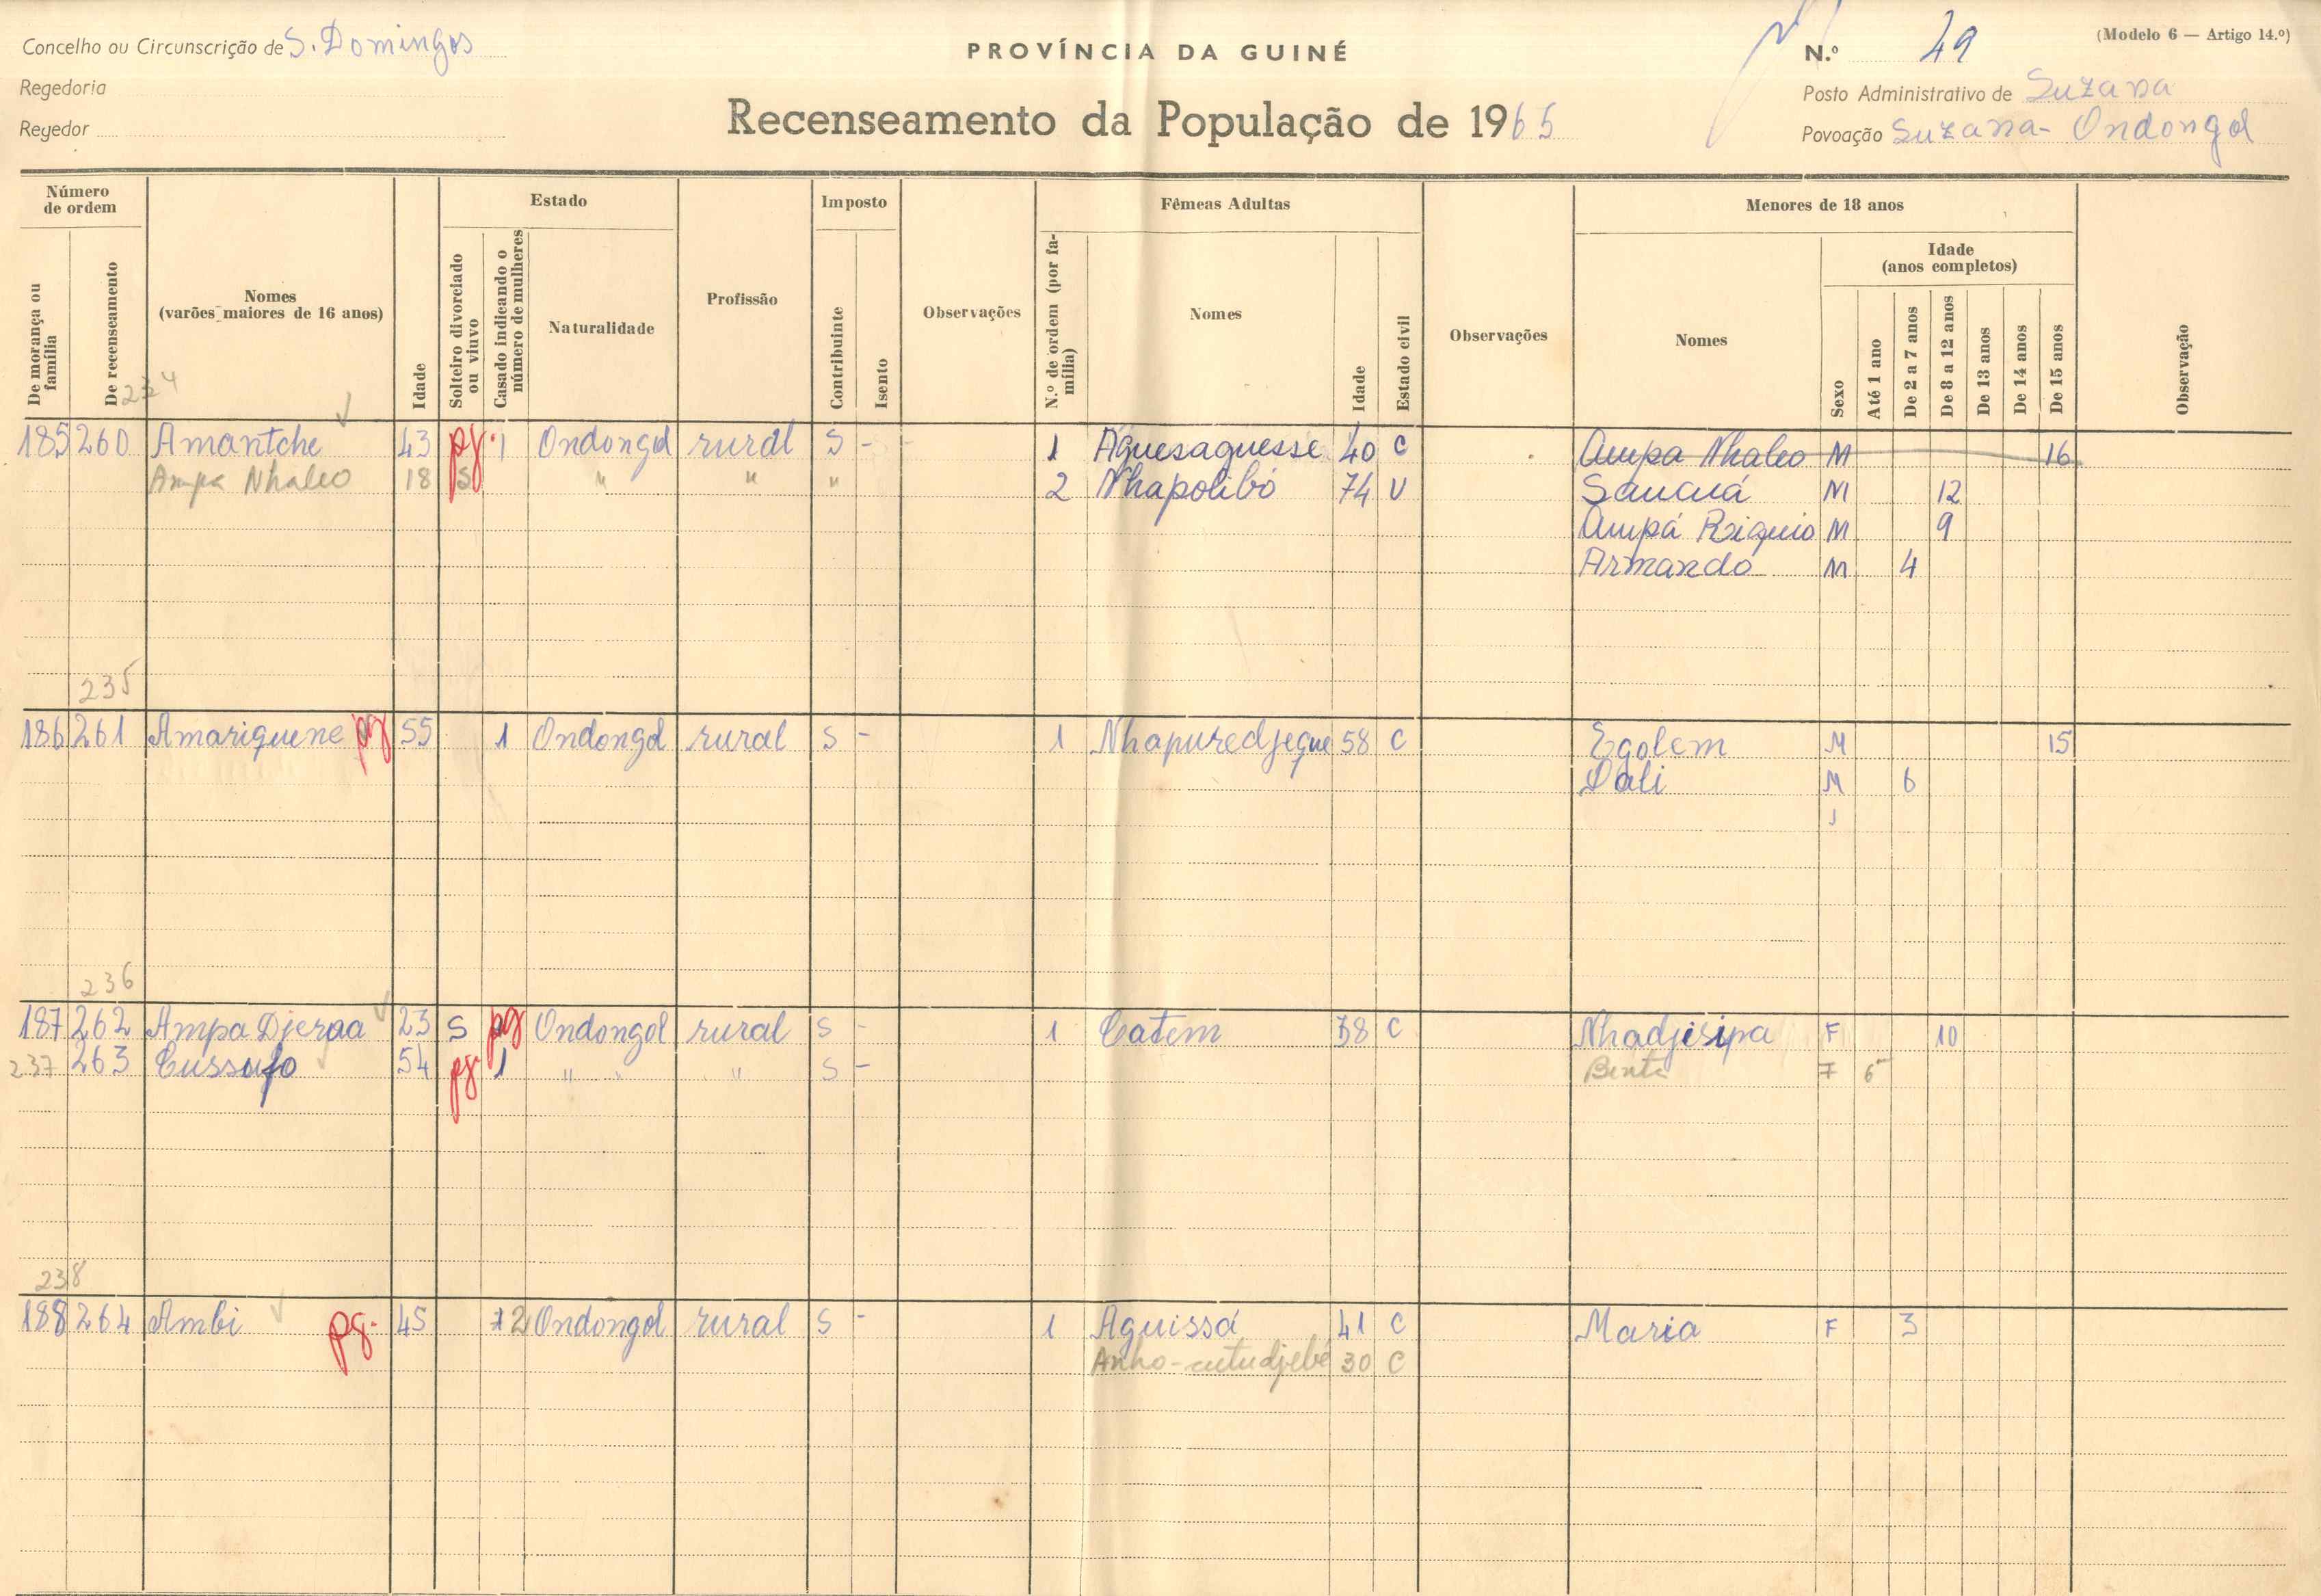 Concelho ou Circunscrição de S. Domingos
Regedoria
Regedor
PROVÍNCIA DA GUINÉ
Recenseamento da População de 1965
(Modelo 6 — Artigo 14.º)
N.º 49
Posto Administrativo de Suzana
Povoação Suzana - Ondongol
Número de ordem
De morança ou família
De recenseamento
Nomes (varões maiores de 16 anos)
Idade
Estado
Solteiro divorciado ou viuvo
Casado indicando o número de mulheres
Naturalidade
Profissão
Imposto
Contribuinte
Isento
Observações
Fêmeas Adultas
N.º de ordem (por família)
Nomes
Idade
Estado civil
Observações
Menores de 18 anos
Nomes
Sexo
Idade (anos completos)
Até 1 ano
De 2 a 7 anos
De 8 a 12 anos
De 13 anos
De 14 anos
De 15 anos
Observação
234
185 260 Amantche 43 pg. 1 Ondongol rural S - 1 Aguesaguesse 40 C Ampa Nhaleo M 16
Ampa Nhaleo 18 S " " " 2 Nhapolibó 74 V Saucuá M 12
Ampá Riquio M 9
Armando M 4
235
186 261 Amariquene pg 55 1 Ondongol rural S - 1 Nhapuredjeque 58 C Egolem M 15
Dali M 6
236
187 262 Ampa Djeraa 23 S pg Ondongol rural S - 1 Catem 38 C Nhadjisipa F 10
237 263 Cussufo 54 pg. 1 " " S - Binta F 6
238
188 264 Ambi pg. 45 2 Ondongol rural S - 1 Aguissá 41 C Maria F 3
Anho-cutudjebé 30 C